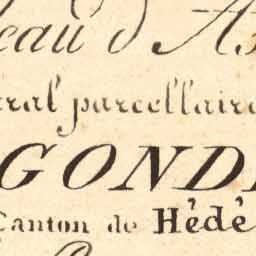 eau d'As
ral parcellaire
GOND
Canton de Hédé